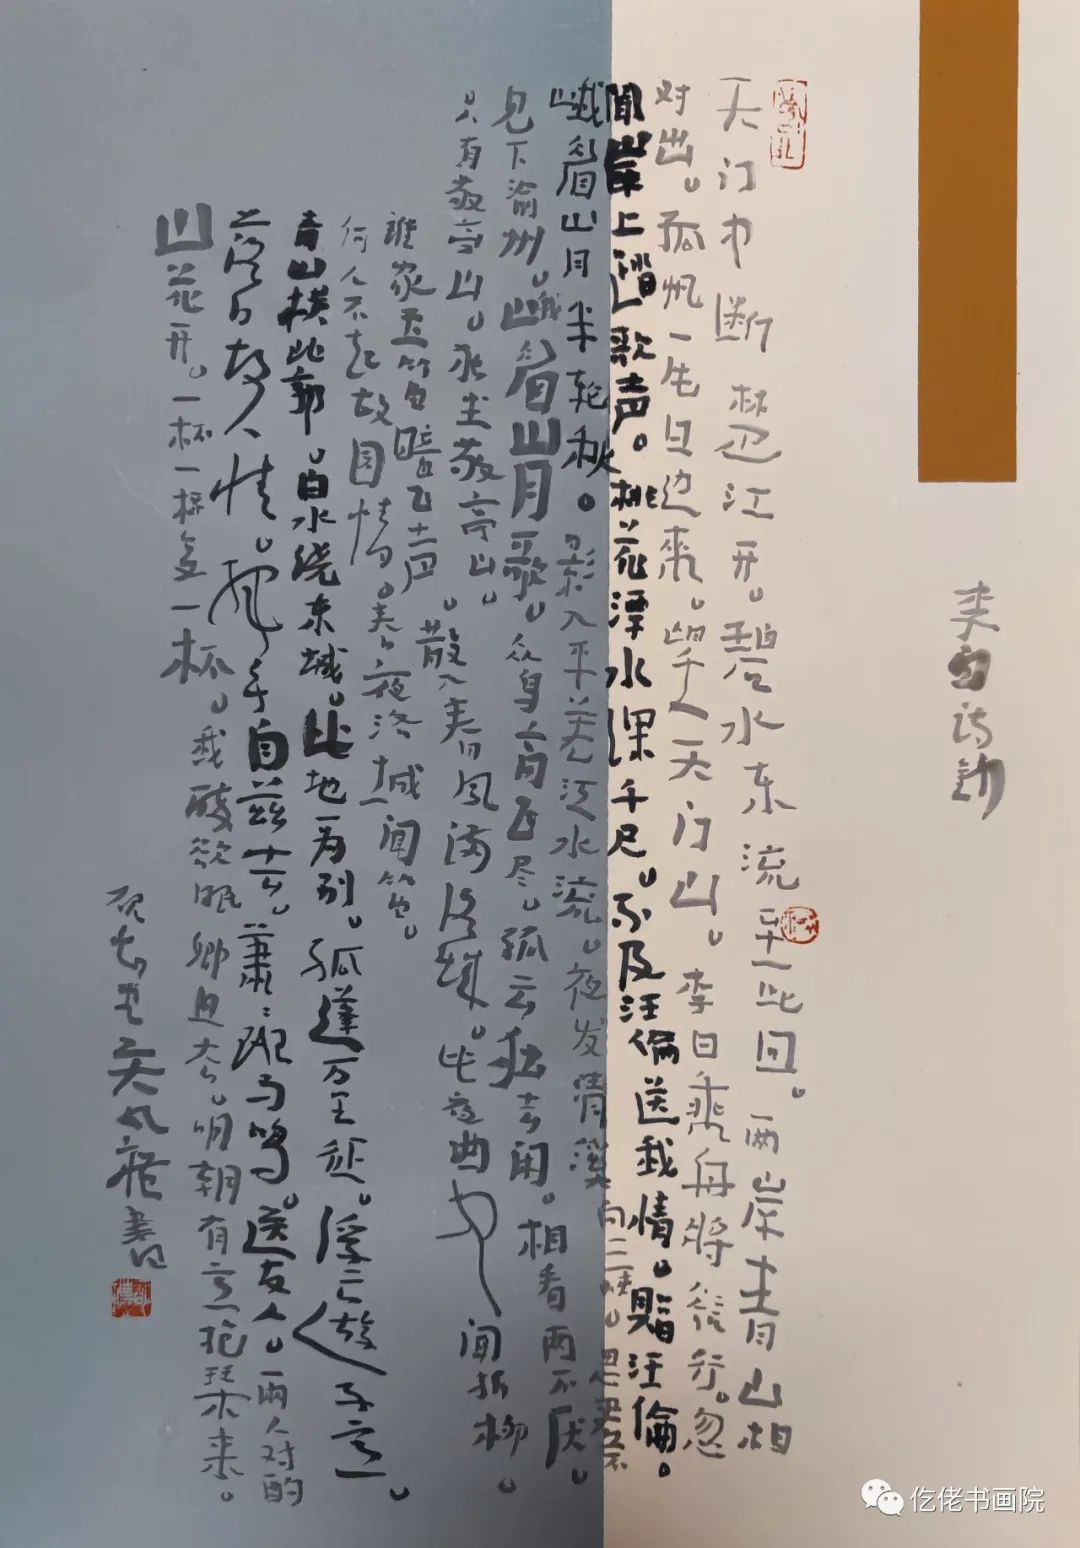 李白诗钞
天门中断楚江开。碧水东流至此回。两岸青山相
对出。孤帆一片日边来。望天门山。李白乘舟将欲行。忽
闻岸上踏歌声。桃花潭水深千尺。不及汪伦送我情。赠汪伦。
峨眉山月半轮秋。影入平羌江水流。夜发清溪向三峡。思君不
见下渝州。峨眉山月歌。众鸟高飞尽。孤云独去闲。相看两不厌。
只有敬亭山。独坐敬亭山。
谁家玉笛暗飞声。散入春风满洛城。此夜曲中闻折柳。
何人不起故园情。春夜洛城闻笛。
青山横北郭。白水绕东城。此地一为别。孤蓬万里征。浮云游子意。
落日故人情。挥手自兹去。萧〻班马鸣。送友人。两人对酌
山花开。一杯一杯复一杯。我醉欲眠卿且去。明朝有意抱琴来。
书
仡佬书画院